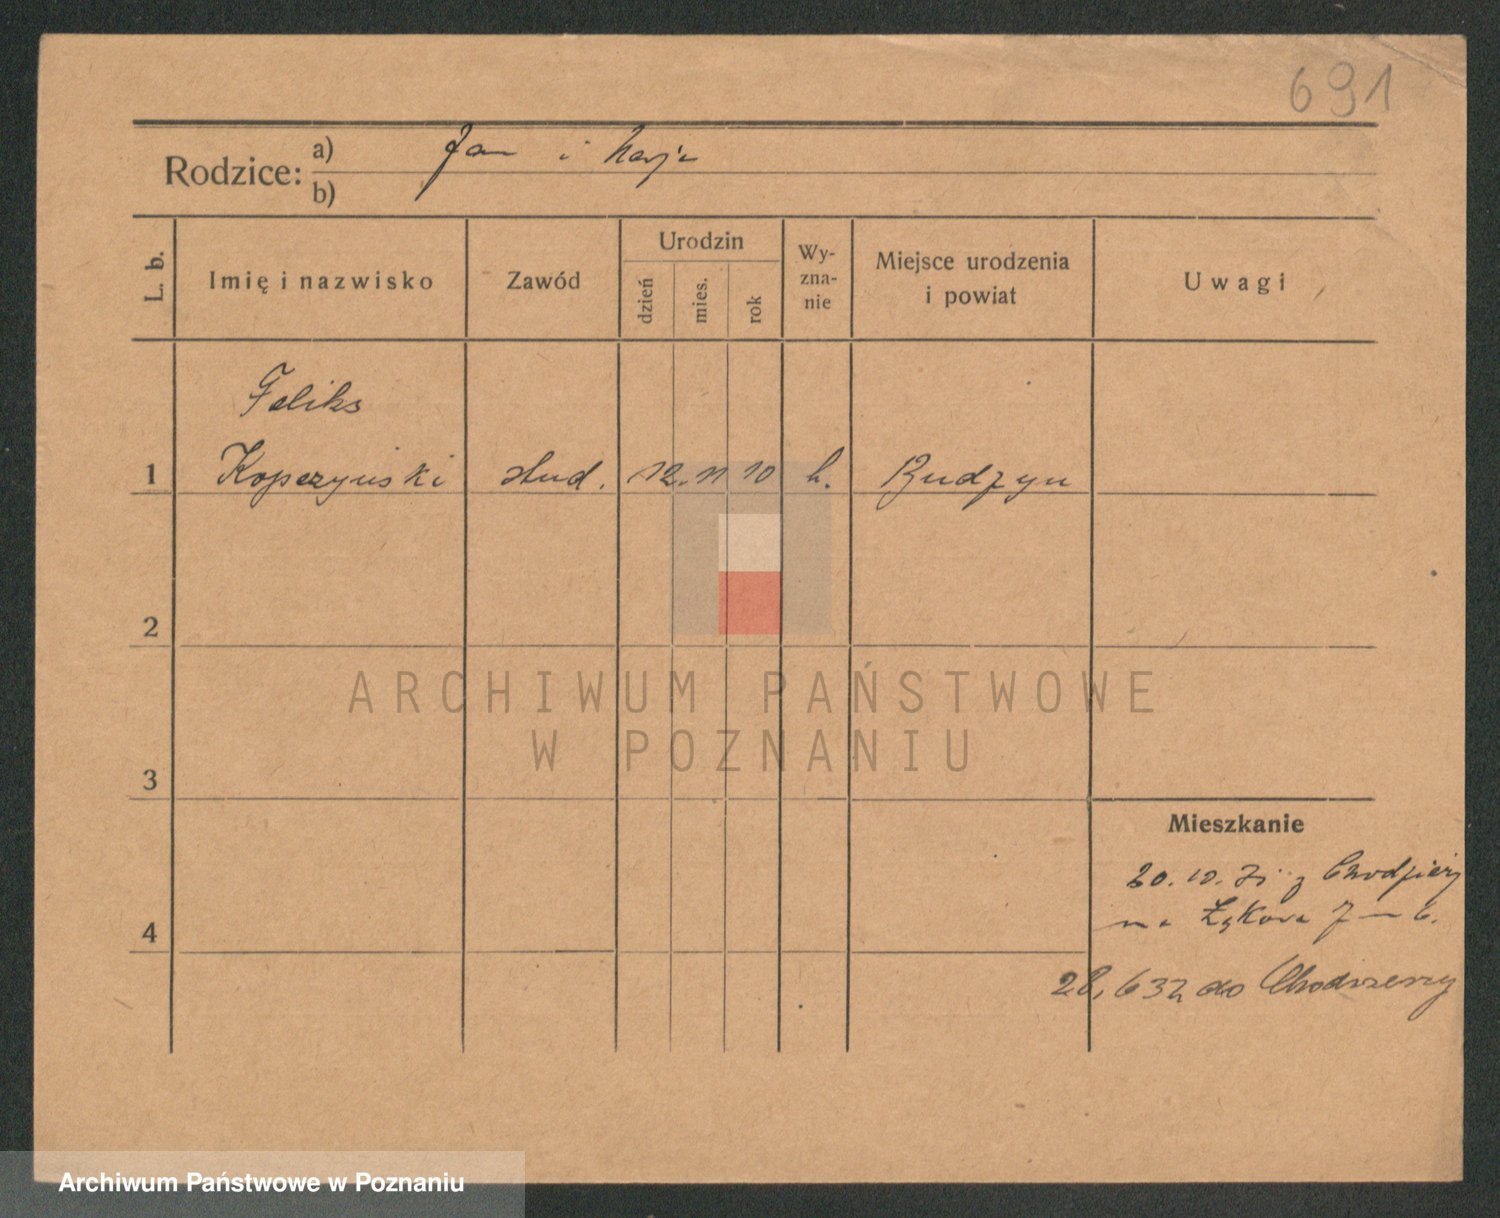 691
Rodzice:
a) Jan i Marja
b)
L. b.
Imię i nazwisko
Zawód
Urodzin
dzień
mies.
rok
Wy-
zna-
nie
Miejsce urodzenia
i powiat
Uwagi
Feliks
1 Kopczyński stud. 12. 11 10 k. Budzyn
2
ARCHIWUM PAŃSTWOWE
W POZNANIU
3
Mieszkanie
20. 10. z Chodzieży
na Łąkowa
4
28, 6 32 do Chodzieży
Archiwum Państwowe w Poznaniu